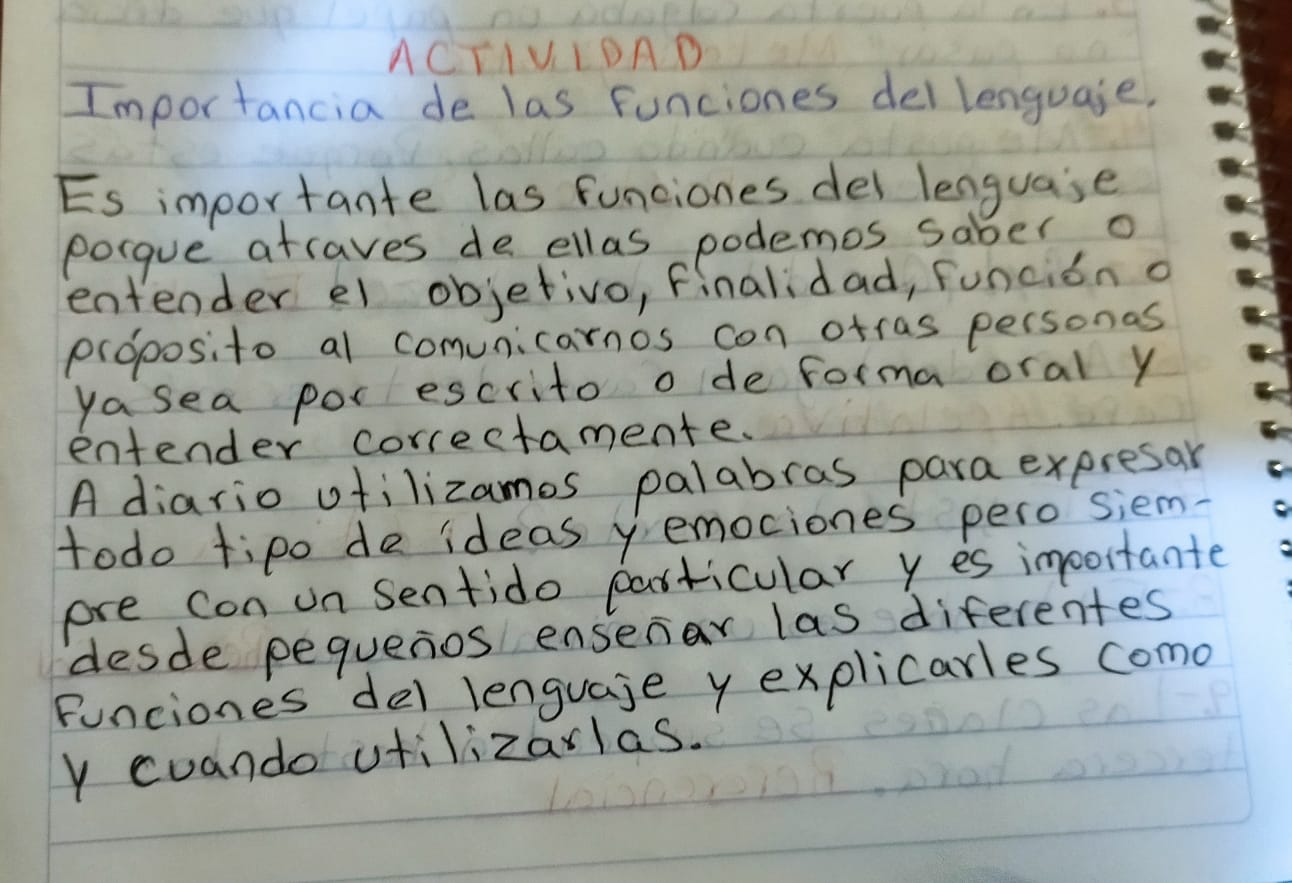 ACTIVIDAD
Importancia de las funciones del lenguaje.
Es importante las funciones del lenguaje
porque atraves de ellas podemos saber o
entender el objetivo, finalidad, función o
próposito al comunicarnos con otras personas
ya sea por escrito o de forma oral y
entender correctamente.
A diario utilizamos palabras para expresar
todo tipo de ideas y emociones pero siem-
pre con un sentido particular y es importante
desde pequeños enseñar las diferentes
funciones del lenguaje y explicarles como
y cuando utilizarlas.